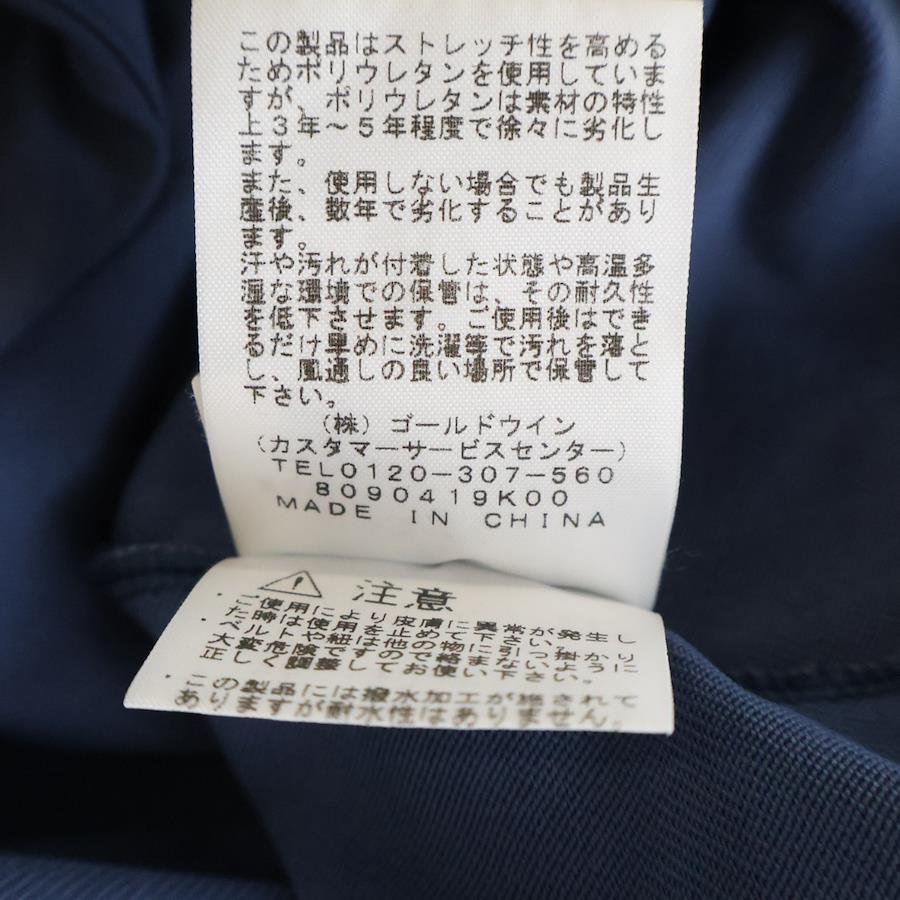 この製品はストレッチ性を高める
ためポリウレタンを使用していま
すが、ポリウレタンは素材の特性
上3年～5年程度で徐々に劣化し
ます。
また、使用しない場合でも製品生
産後、数年で劣化することがあり
ます。
汗や汚れが付着した状態や高温多
湿な環境での保管は、その耐久性
を低下させます。ご使用後はでき
るだけ早めに洗濯等で汚れを落と
し、風通しの良い場所で保管して
下さい。
(株)ゴールドウイン
(カスタマーサービスセンター)
TEL0120-307-560
8090419K00
MADE IN CHINA
⚠ 注意
・ご使用により皮膚に異常が発生し
た時は使用を止めて下さい。
・ベルトや紐は他の物に引っ掛かり
大変危険ですので絡まないように
正しく調整してお使い下さい。
・この製品には撥水加工が施されて
ありますが耐水性はありません。